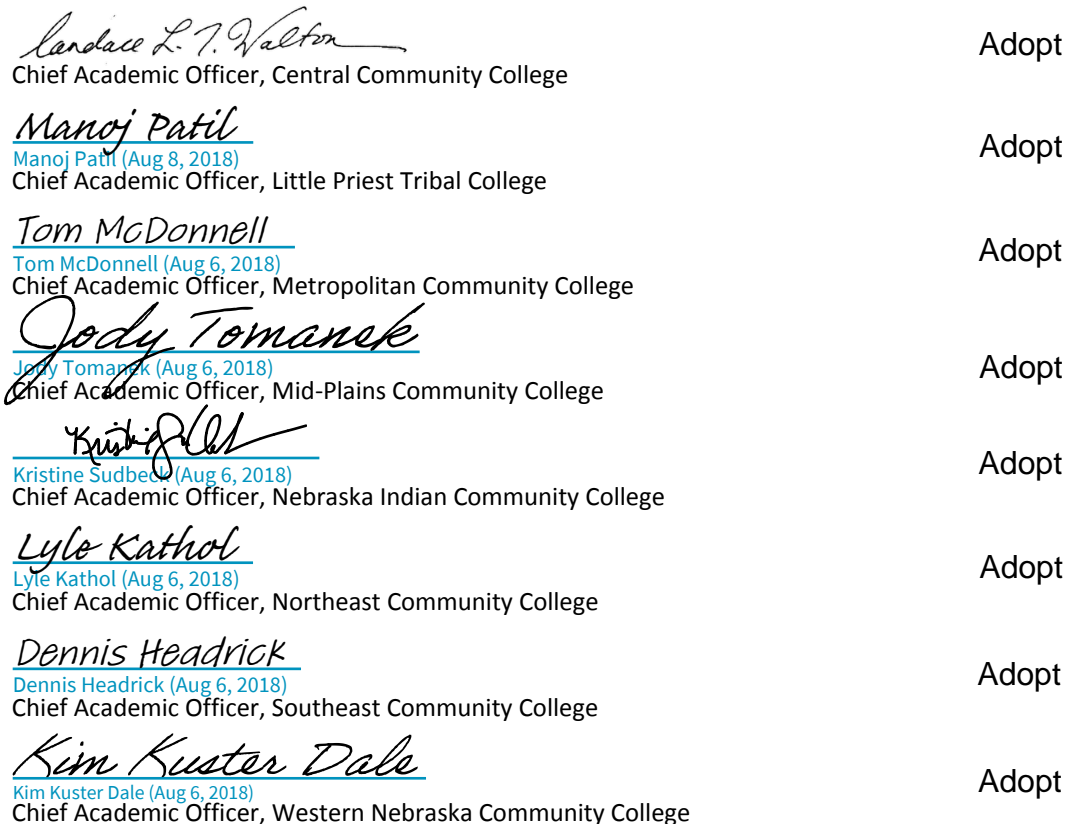 Candace L. T. Walton Adopt
Chief Academic Officer, Central Community College
Manoj Patil Adopt
Manoj Patil (Aug 8, 2018)
Chief Academic Officer, Little Priest Tribal College
Tom McDonnell Adopt
Tom McDonnell (Aug 6, 2018)
Chief Academic Officer, Metropolitan Community College
Jody Tomanek
Jody Tomanek (Aug 6, 2018) Adopt
Chief Academic Officer, Mid-Plains Community College
Kristine Sudbeck (Aug 6, 2018) Adopt
Chief Academic Officer, Nebraska Indian Community College
Lyle Kathol
Lyle Kathol (Aug 6, 2018) Adopt
Chief Academic Officer, Northeast Community College
Dennis Headrick
Dennis Headrick (Aug 6, 2018) Adopt
Chief Academic Officer, Southeast Community College
Kim Kuster Dale
Kim Kuster Dale (Aug 6, 2018) Adopt
Chief Academic Officer, Western Nebraska Community College